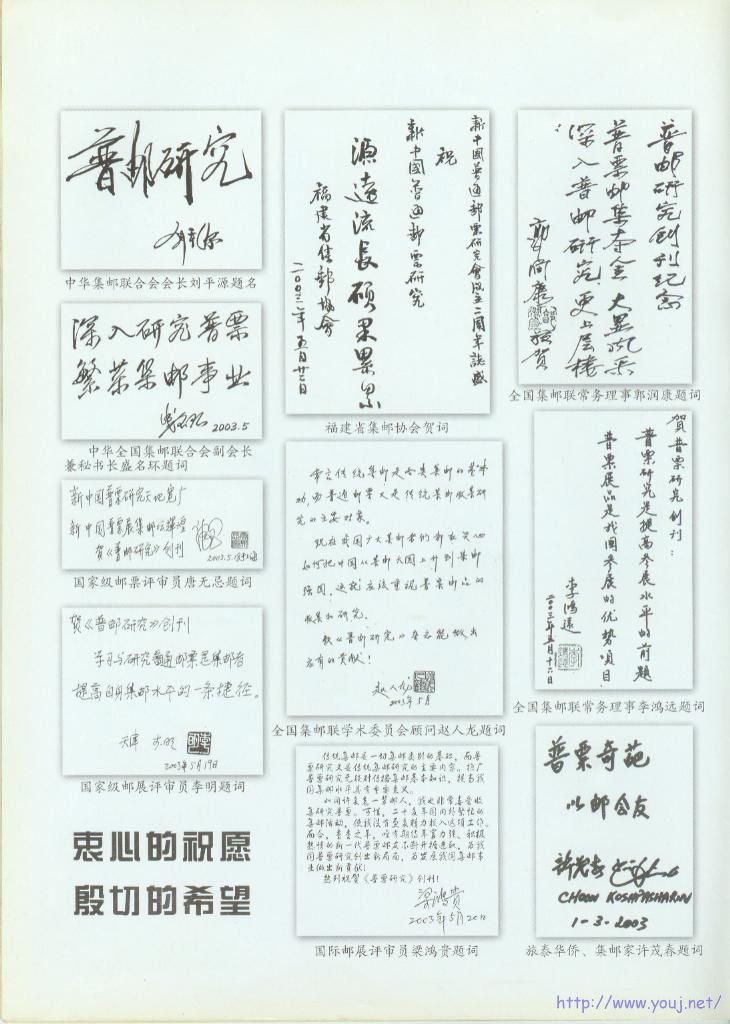 普邮研究
中华集邮联合会会长刘平源题名
深入研究普票
繁荣集邮事业
2003.5
中华全国集邮联合会副会长
兼秘书长盛名环题词
新中国普票研究天地宽广
新中国普票展集邮坛辉煌
贺《普邮研究》创刊
国家级邮票评审员唐无忌题词
贺《普邮研究》创刊
学习与研究普通邮票是集邮者
提高自身集邮水平的一条捷径。
天津 李明
2003年5月19日
国家级邮展评审员李明题词
衷心的祝愿
殷切的希望
新中國普通郵票研究會成立二周年誌盛
祝
新中國普通郵票研究
源遠流長硕果累累
福建省集郵協會
二〇〇三年五月廿二日
福建省集邮协会贺词
现在我国广大集邮者的都在关心
如何把中国从集邮大国上升到集邮
强国，这就应该重视普票邮品的
收集和研究。
祝《普邮研究》杂志能做出
应有的贡献！
赵人龙
2003年5月
全国集邮联学术委员会顾问赵人龙题词
传统集邮是一切集邮类别的基础，而普
票研究又是传统集邮研究的主要内容。推广
普票研究无疑对传播集邮基本知识，提高我
国集邮水平具有重要意义。
热烈祝贺《普票研究》创刊！
梁鸿贵
2003年5月20日
国际邮展评审员梁鸿贵题词
普邮研究創刊纪念
普票邮集夺金大显风采
深入普邮研究更上层楼
郭润康
敬贺
全国集邮联常务理事郭润康题词
賀普票研究創刊：
普票研究是提高参展水平的前題
普票展品是我國参展的优势項目
李鴻遠
二〇〇三年五月十六日
全国集邮联常务理事李鸿远题词
普票奇葩
以邮会友
許茂春
CHOON KOSHPASHARIN
1-3-2003
旅泰华侨、集邮家许茂春题词
http://www.youj.net/